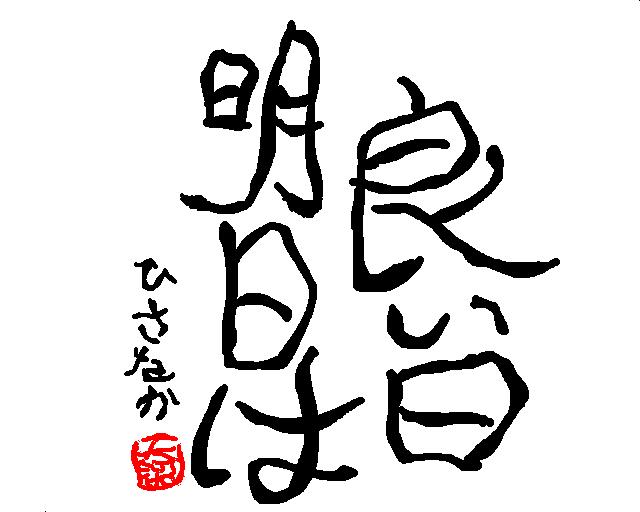 良い日
明日は
ひさなか